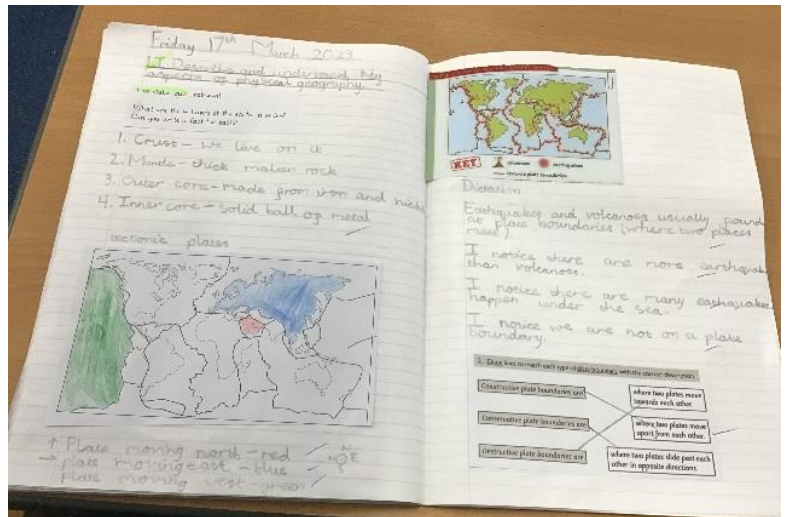 Friday 17th March 2023
L.I. Describe and understand key
aspects of physical geography.
retrieval
What are the 4 layers of the earth in order?
Can you write a fact for each?
1. Crust - we live on it
2. Mantle - thick molten rock
3. Outer core - made from iron and nickel
4. Inner core - solid ball of metal
tectonic plates
↑ Plate moving north - red
→ plate moving east - blue
plate moving west - green
N
E
KEY
volcanoes
earthquakes
tectonic plate boundaries
Dictation
Earthquakes and volcanoes usually found
at plate boundaries (where two places
meet).
I notice there are more earthquak
than volcanoes.
I notice there are many earthquakes
happen under the sea.
I notice we are not on a plate
boundary.
1. Draw lines to match each type of plate boundary with the correct description.
Constructive plate boundaries are
where two plates move
towards each other.
Conservative plate boundaries are
where two plates move
apart from each other.
Destructive plate boundaries are
where two plates slide past each
other in opposite directions.